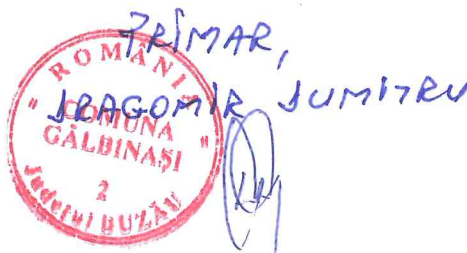 PRIMAR,
DRAGOMIR DUMITRU
ROMÂNIA
COMUNA
GĂLBINAȘI
2
Județul BUZĂU